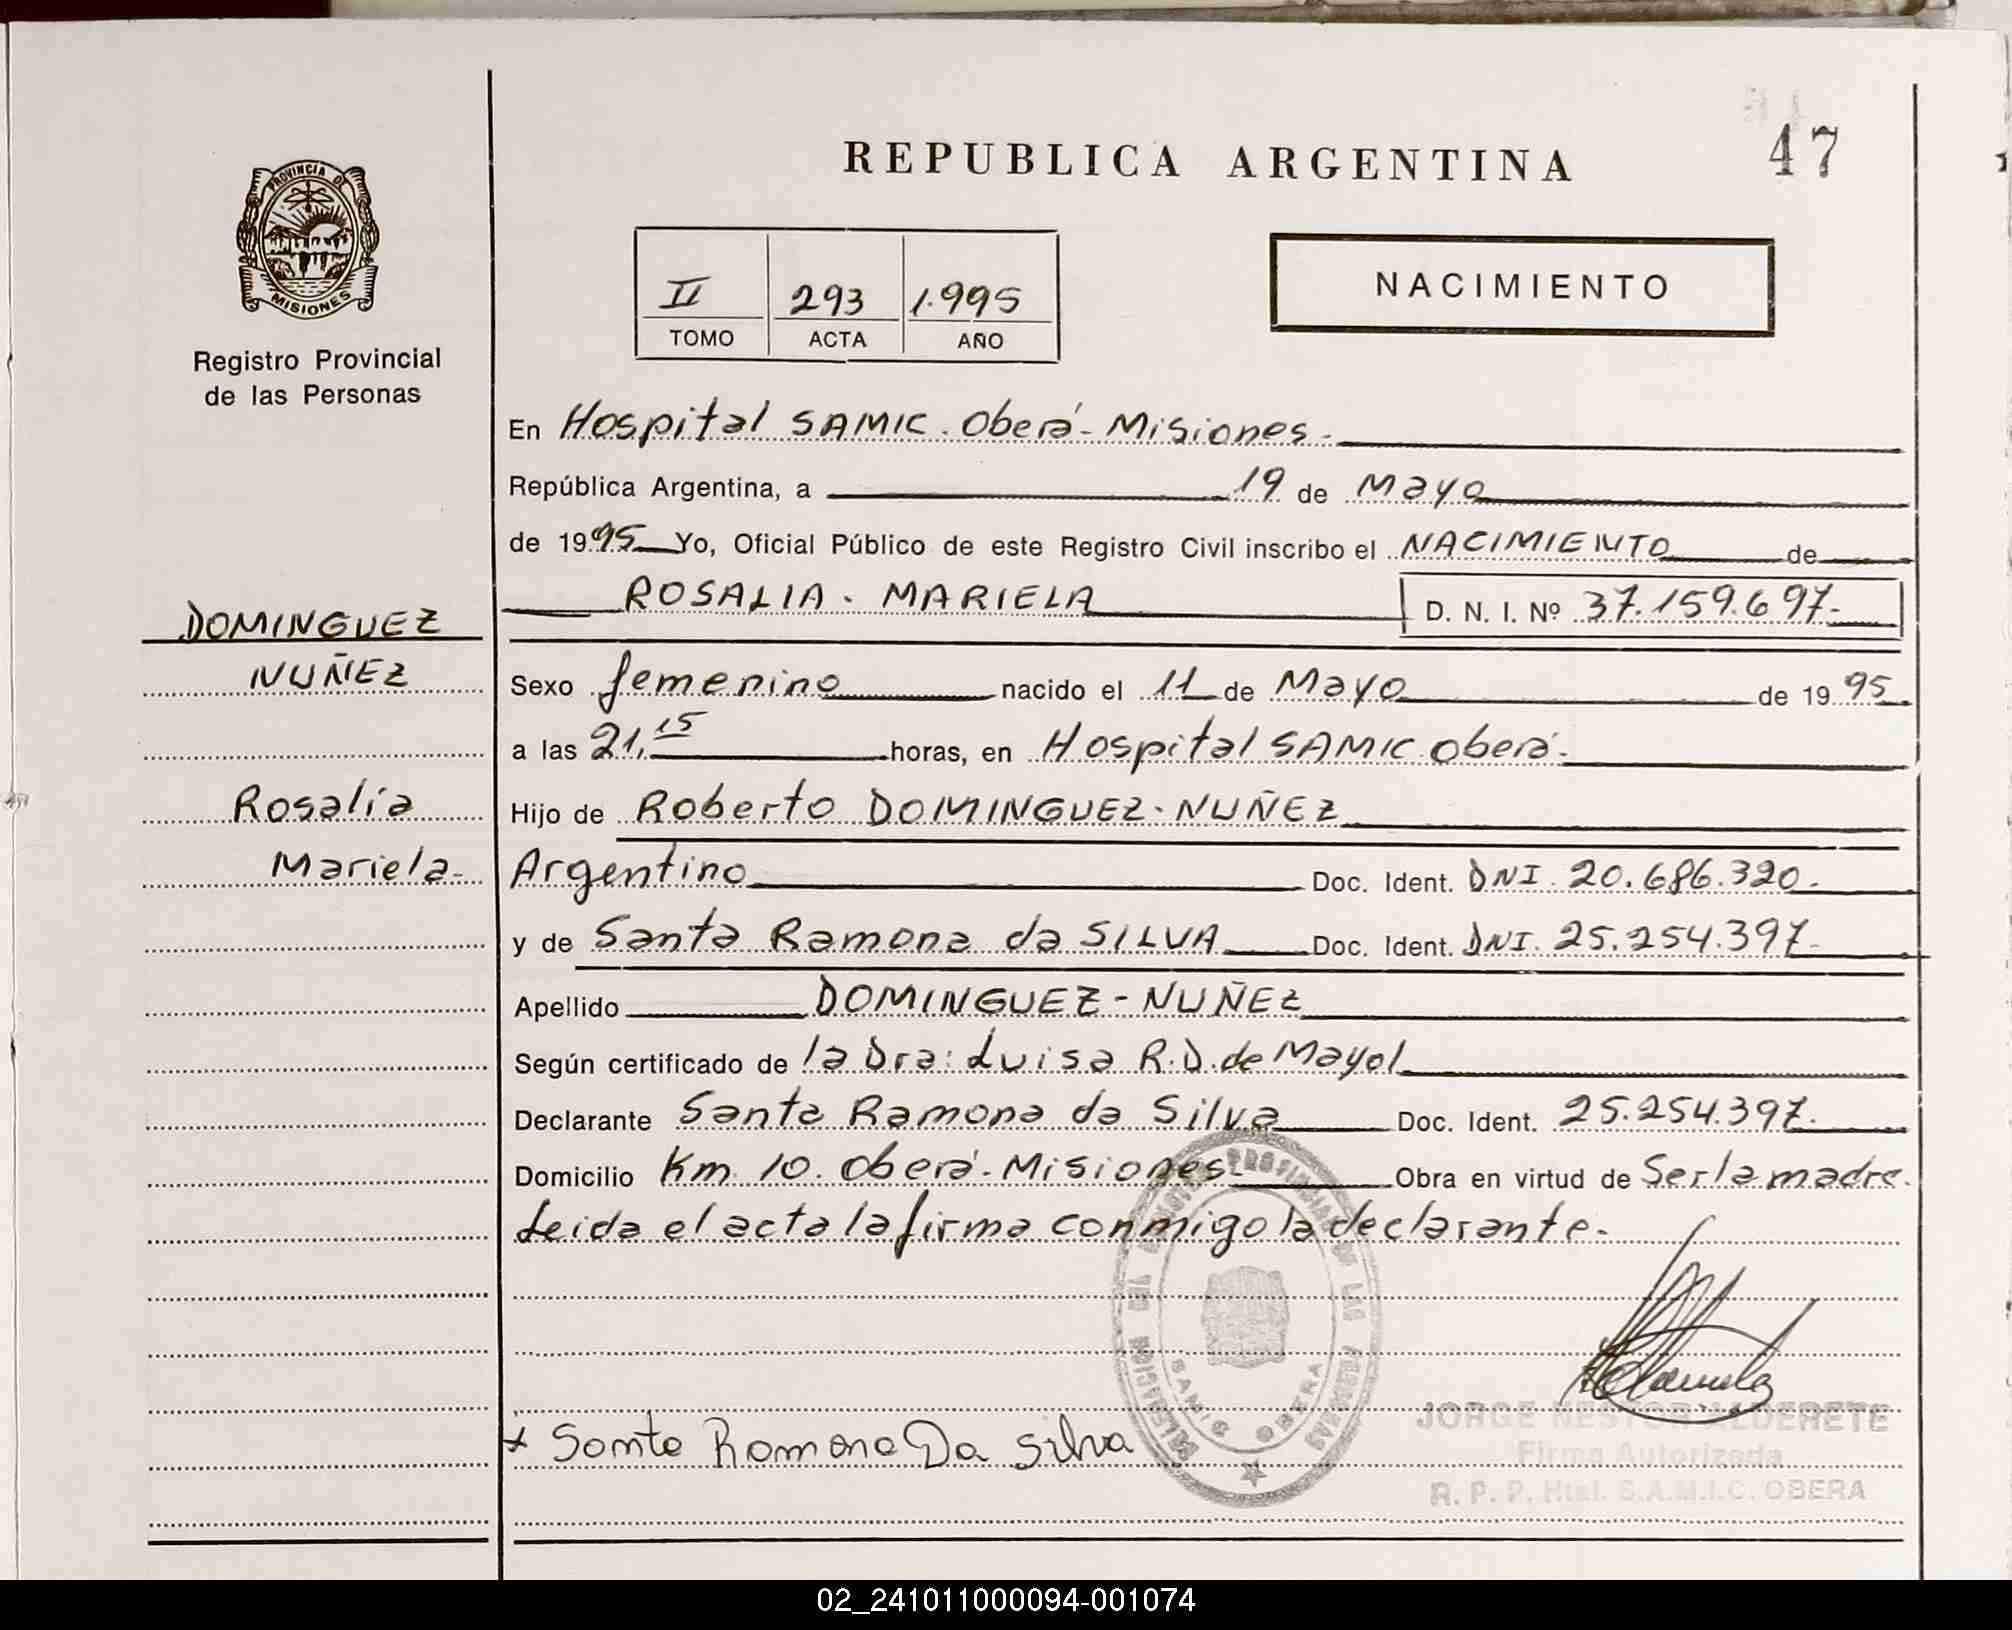 47
REPUBLICA ARGENTINA
PROVINCIA DE
MISIONES
Registro Provincial
de las Personas
II 293 1.995
TOMO ACTA AÑO
NACIMIENTO
En Hospital SAMIC. Oberá-Misiones.
República Argentina, a 19 de Mayo
de 1995 Yo, Oficial Público de este Registro Civil inscribo el NACIMIENTO de
ROSALIA. MARIELA D. N. I. Nº 37.159.697.-
DOMINGUEZ
NUÑEZ
Rosalía
Mariela-
Sexo femenino nacido el 11 de Mayo de 1995
a las 21,15 horas, en Hospital SAMIC Oberá-
Hijo de Roberto DOMINGUEZ-NUÑEZ
Argentino Doc. Ident. DNI. 20.686.320.
y de Santa Ramona da SILVA Doc. Ident. DNI. 25.254.397.
Apellido DOMINGUEZ-NUÑEZ
Según certificado de la Dra: Luisa R.D. de Mayol
Declarante Santa Ramona da Silva Doc. Ident. 25.254.397.
Domicilio Km. 10. Oberá-Misiones- Obra en virtud de Ser la madre.
Leida el acta la firma conmigo la declarante.
DELEGACION DEL REGISTRO PROVINCIAL DE LAS PERSONAS
SAMIC OBERA
x Santa Ramona Da Silva
JORGE NESTOR ALDERETE
Firma Autorizada
R. P. P. Htal. S.A.M.I.C. OBERA
02_241011000094-001074